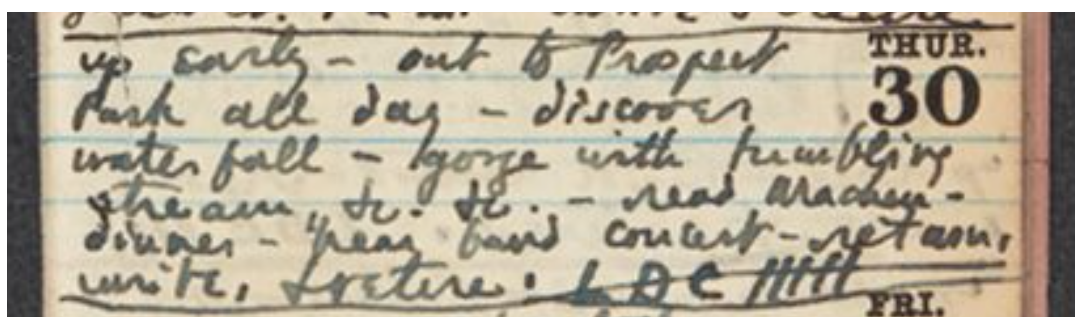 up early – out to Prospect
THUR.
30
Park all day – discover
waterfall – gorge with tumbling
stream, &c. &c. – read Arachne –
dinner – hear band concert – return,
write, & retire. LDC
FRI.